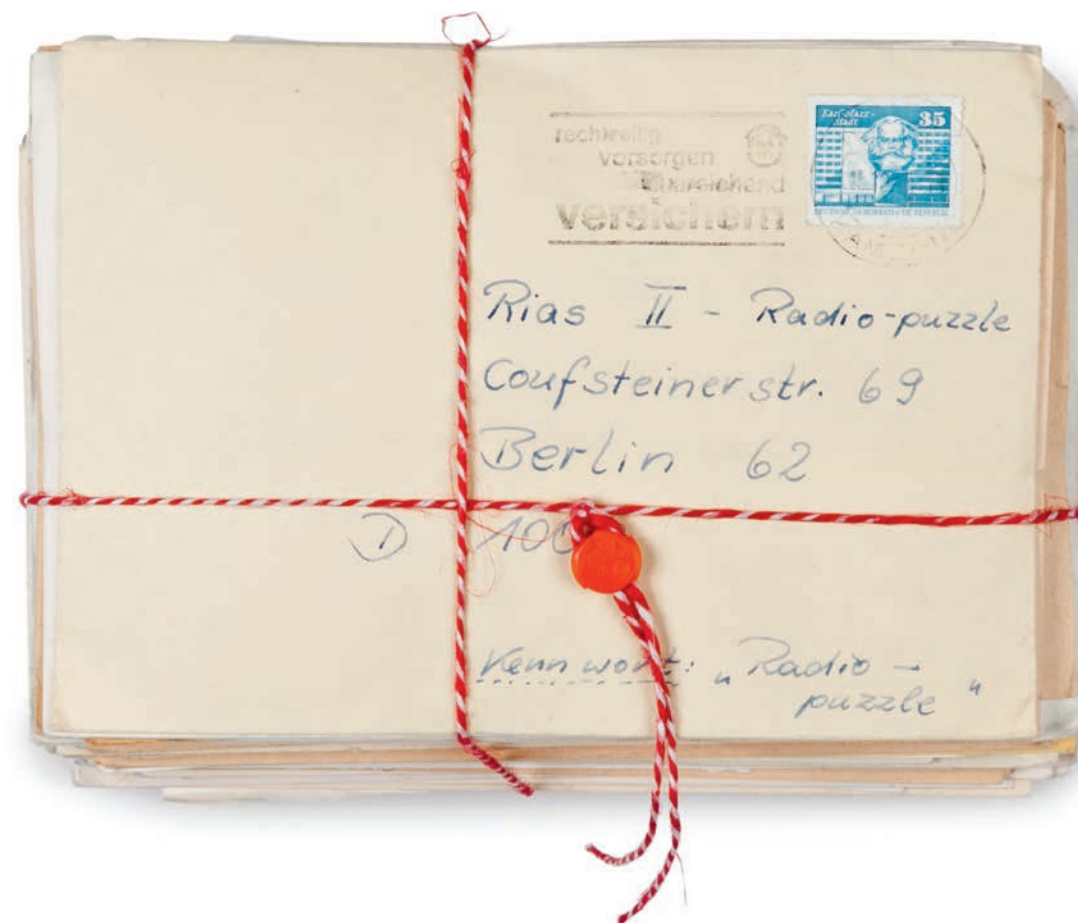 rechtzeitig
vorsorgen
ausreichend
versichern
Karl-Marx-
Stadt
35
DEUTSCHE DEMOKRATISCHE REPUBLIK
Rias II - Radio-puzzle
Coufsteinerstr. 69
Berlin 62
D 100
Kennwort: „Radio -
puzzle"